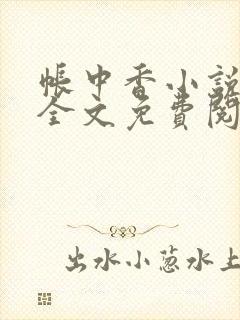 帳中香小說
全文免費閱
出水小蔥水上